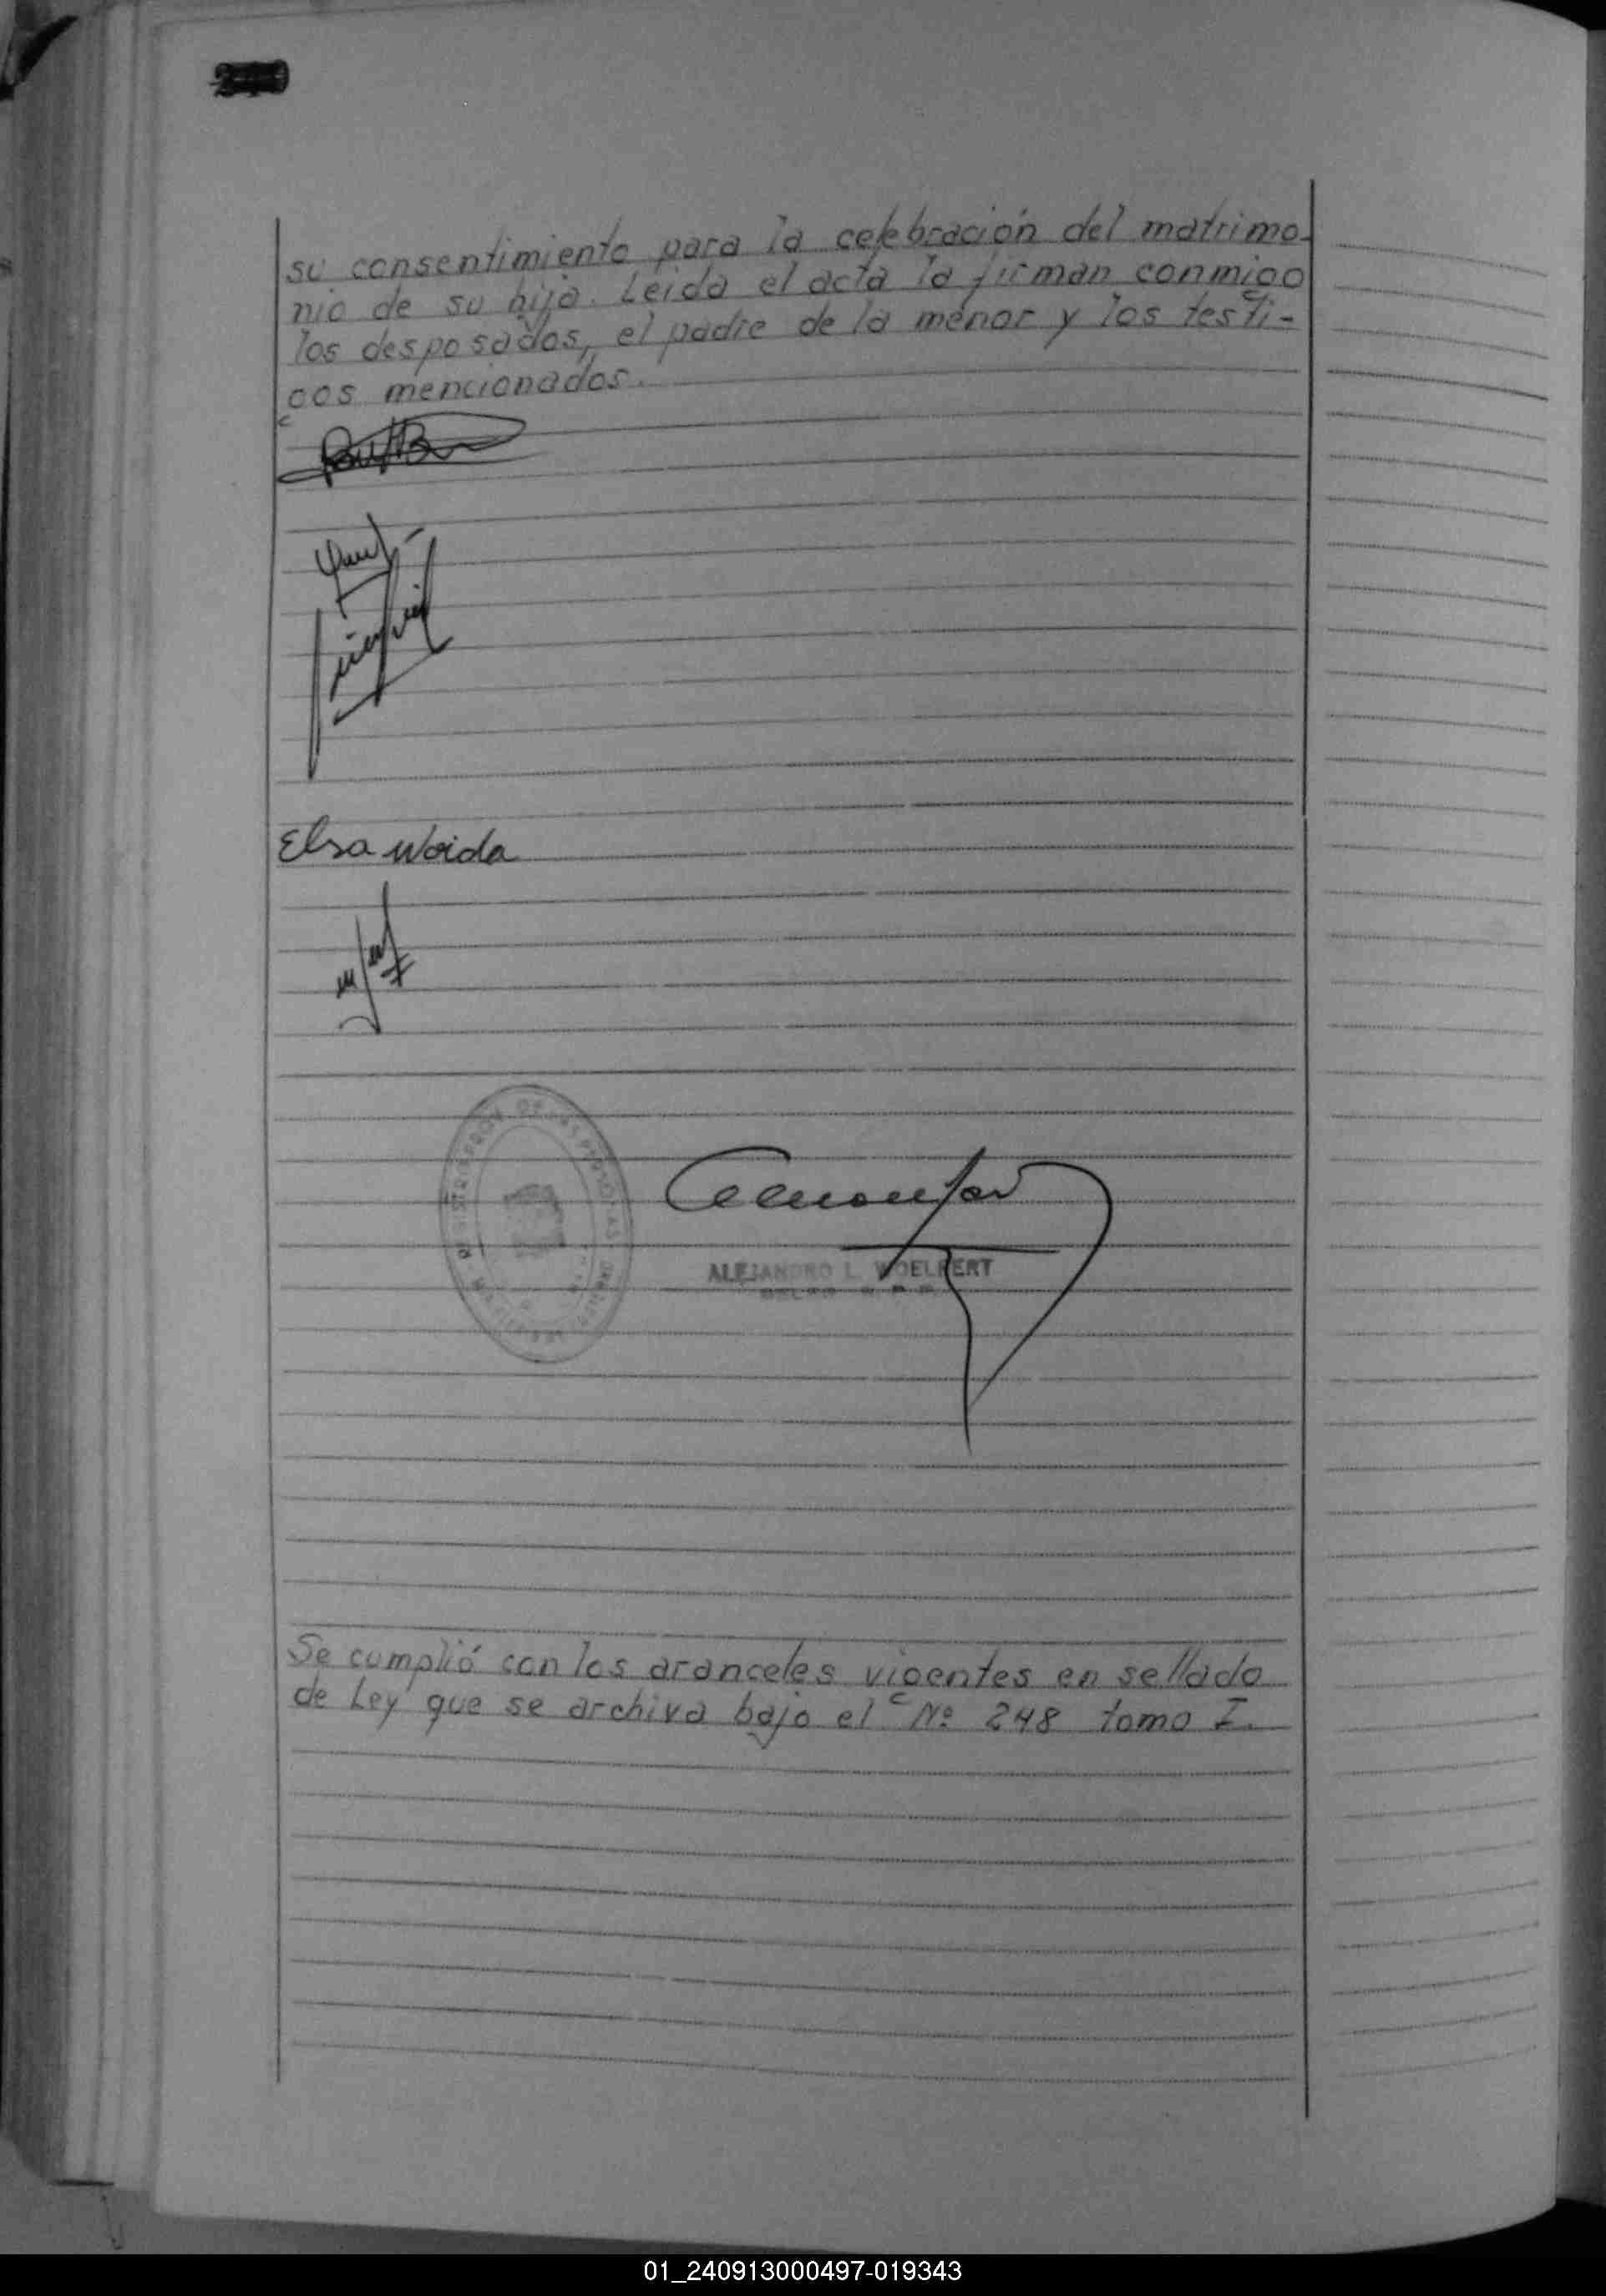 su consentimiento para la celebración del matrimo-
nio de su hija. Leida el acta la firman conmigo
los desposados, el padre de la menor y los testi-
gos mencionados.
Elsa Woida
ALEJANDRO L. WOELFERT
Se cumplió con los aranceles vigentes en sellado
de Ley que se archiva bajo el Nº 248 tomo I.
01_240913000497-019343